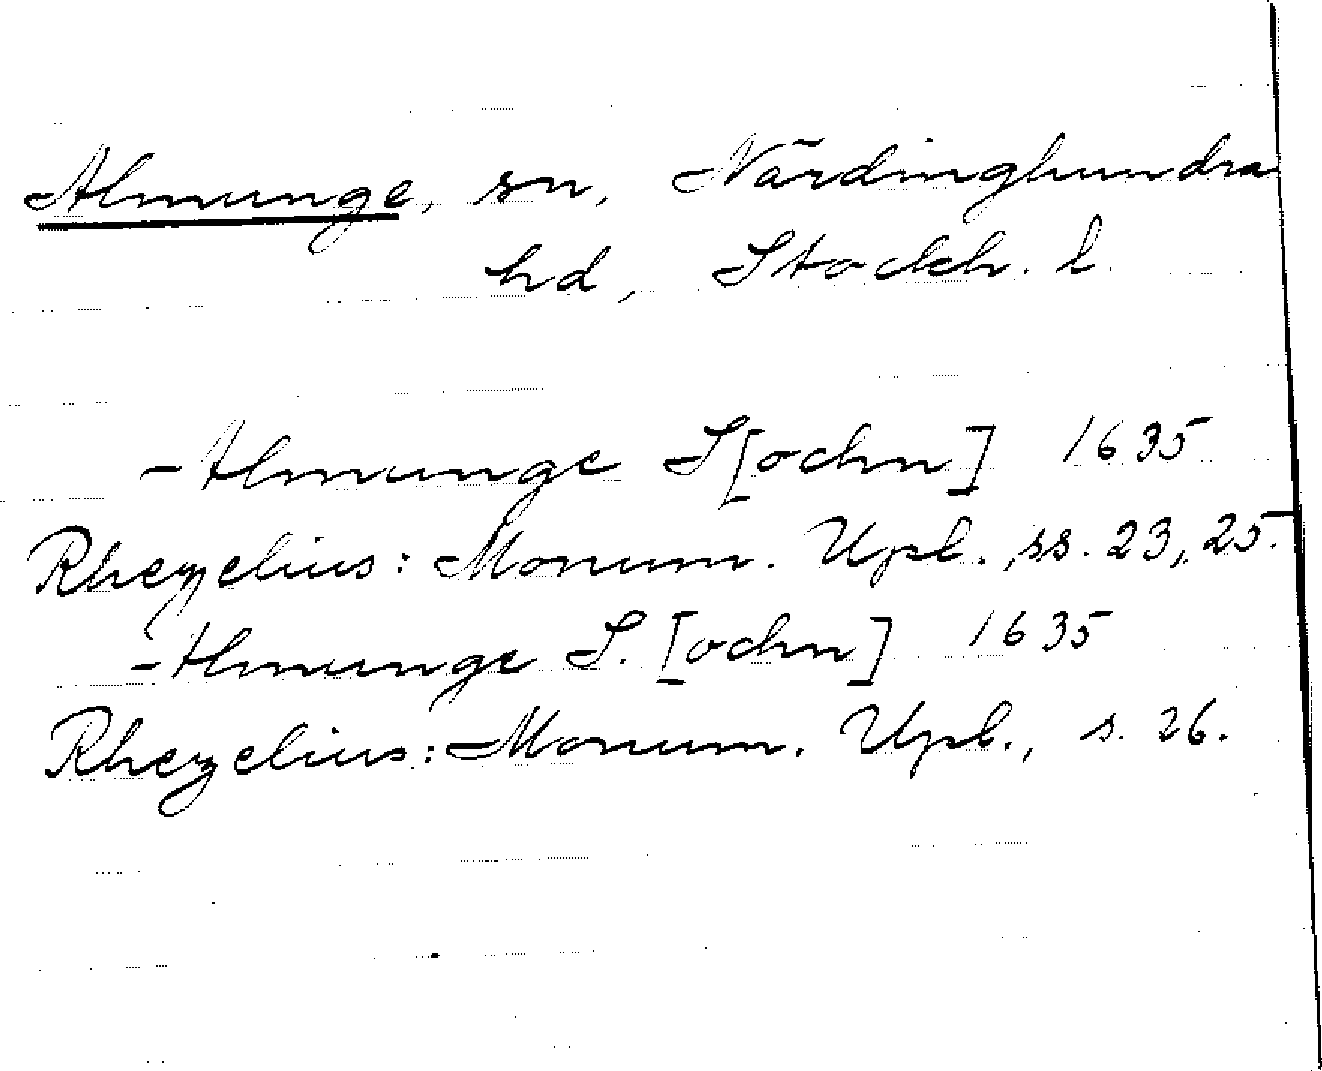 Almunge, sn, Närdinghundra
hd, Stockh. l.
- Almunge S[ochn] 1635
Rhezelius: Monum. Upl., ss. 23, 25.
- Almunge S. [ochn] 1635
Rhezelius: Monum. Upl., s. 26.